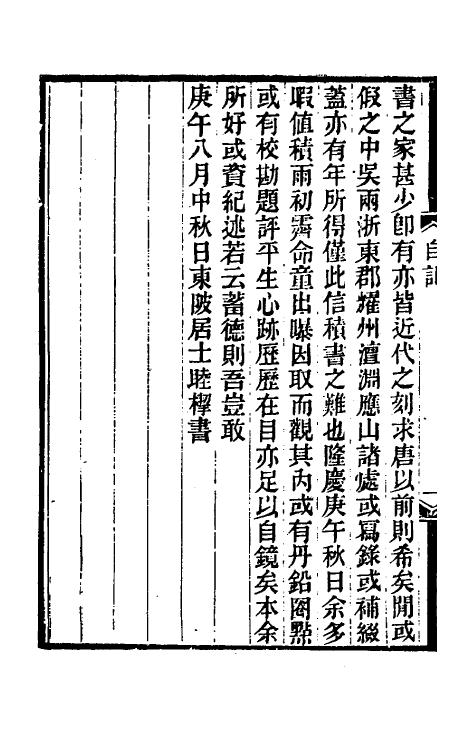 書之家甚少卽有亦皆近代之刻求唐以前則希矣閒或
假之中吳兩浙東郡耀州澶淵應山諸處或寫錄或補綴
蓋亦有年所得僅此信積書之難也隆慶庚午秋日余多
暇值積雨初霽命童出曝因取而觀其內或有丹鉛圈點
或有校勘題評平生心跡歷歷在目亦足以自鏡矣本余
所好或資紀述若云蓄德則吾豈敢
庚午八月中秋日東陂居士睦㮮書
自記